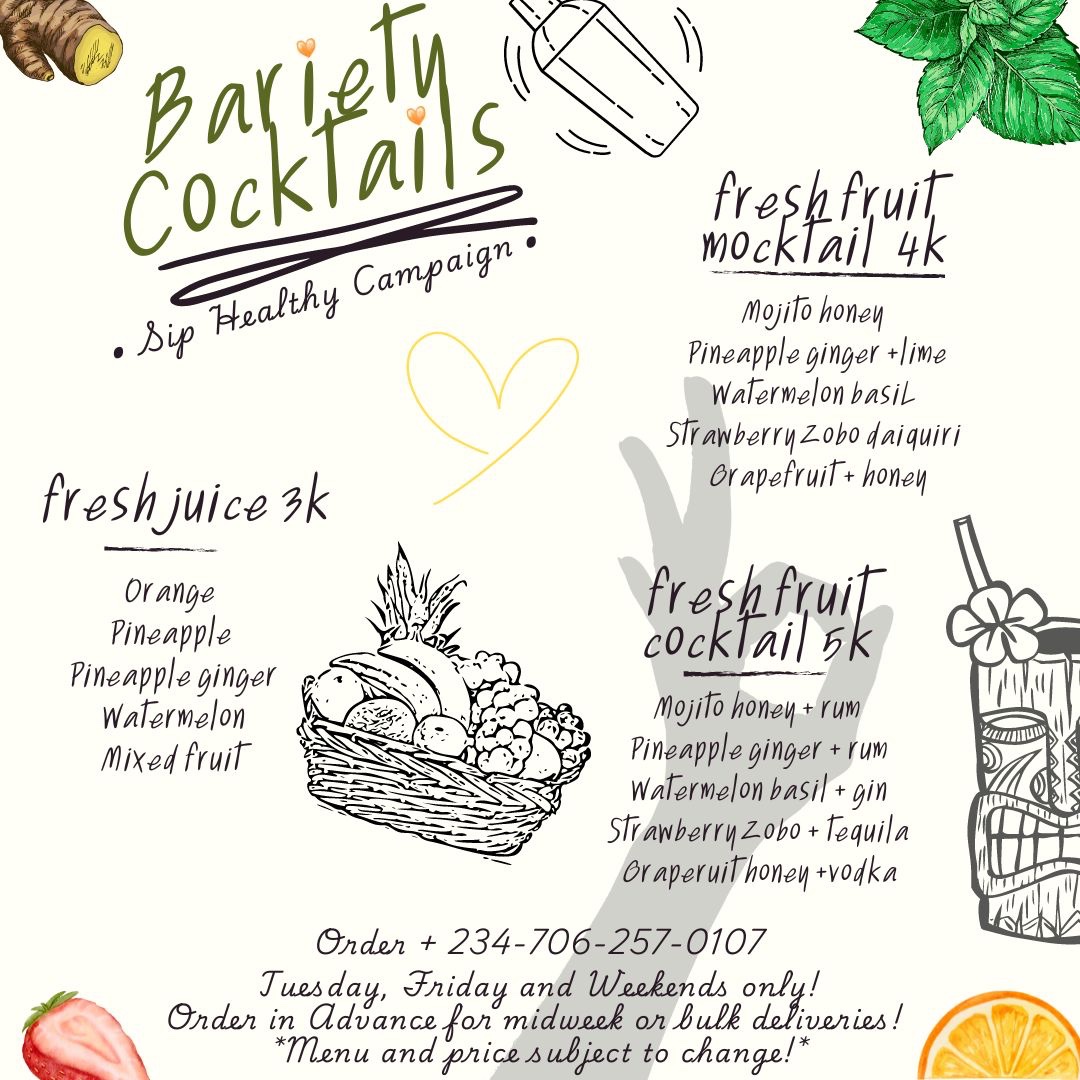 Bariety
Cocktails
• Sip Healthy Campaign •
fresh fruit
mocktail 4k
Mojito honey
Pineapple ginger +lime
Watermelon basil
Strawberry Zobo daiquiri
Grapefruit + honey
fresh juice 3k
Orange
Pineapple
Pineapple ginger
Watermelon
Mixed fruit
fresh fruit
cocktail 5k
Mojito honey + rum
Pineapple ginger + rum
Watermelon basil + gin
Strawberry Zobo + Tequila
Graperuit honey +vodka
Order + 234-706-257-0107
Tuesday, Friday and Weekends only!
Order in Advance for midweek or bulk deliveries!
*Menu and price subject to change!*